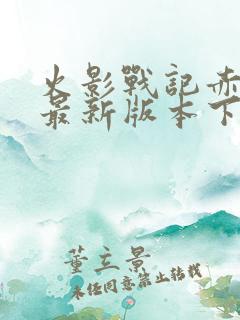 火影戰記赤
最新版本下
董立景
未经同意禁止转载